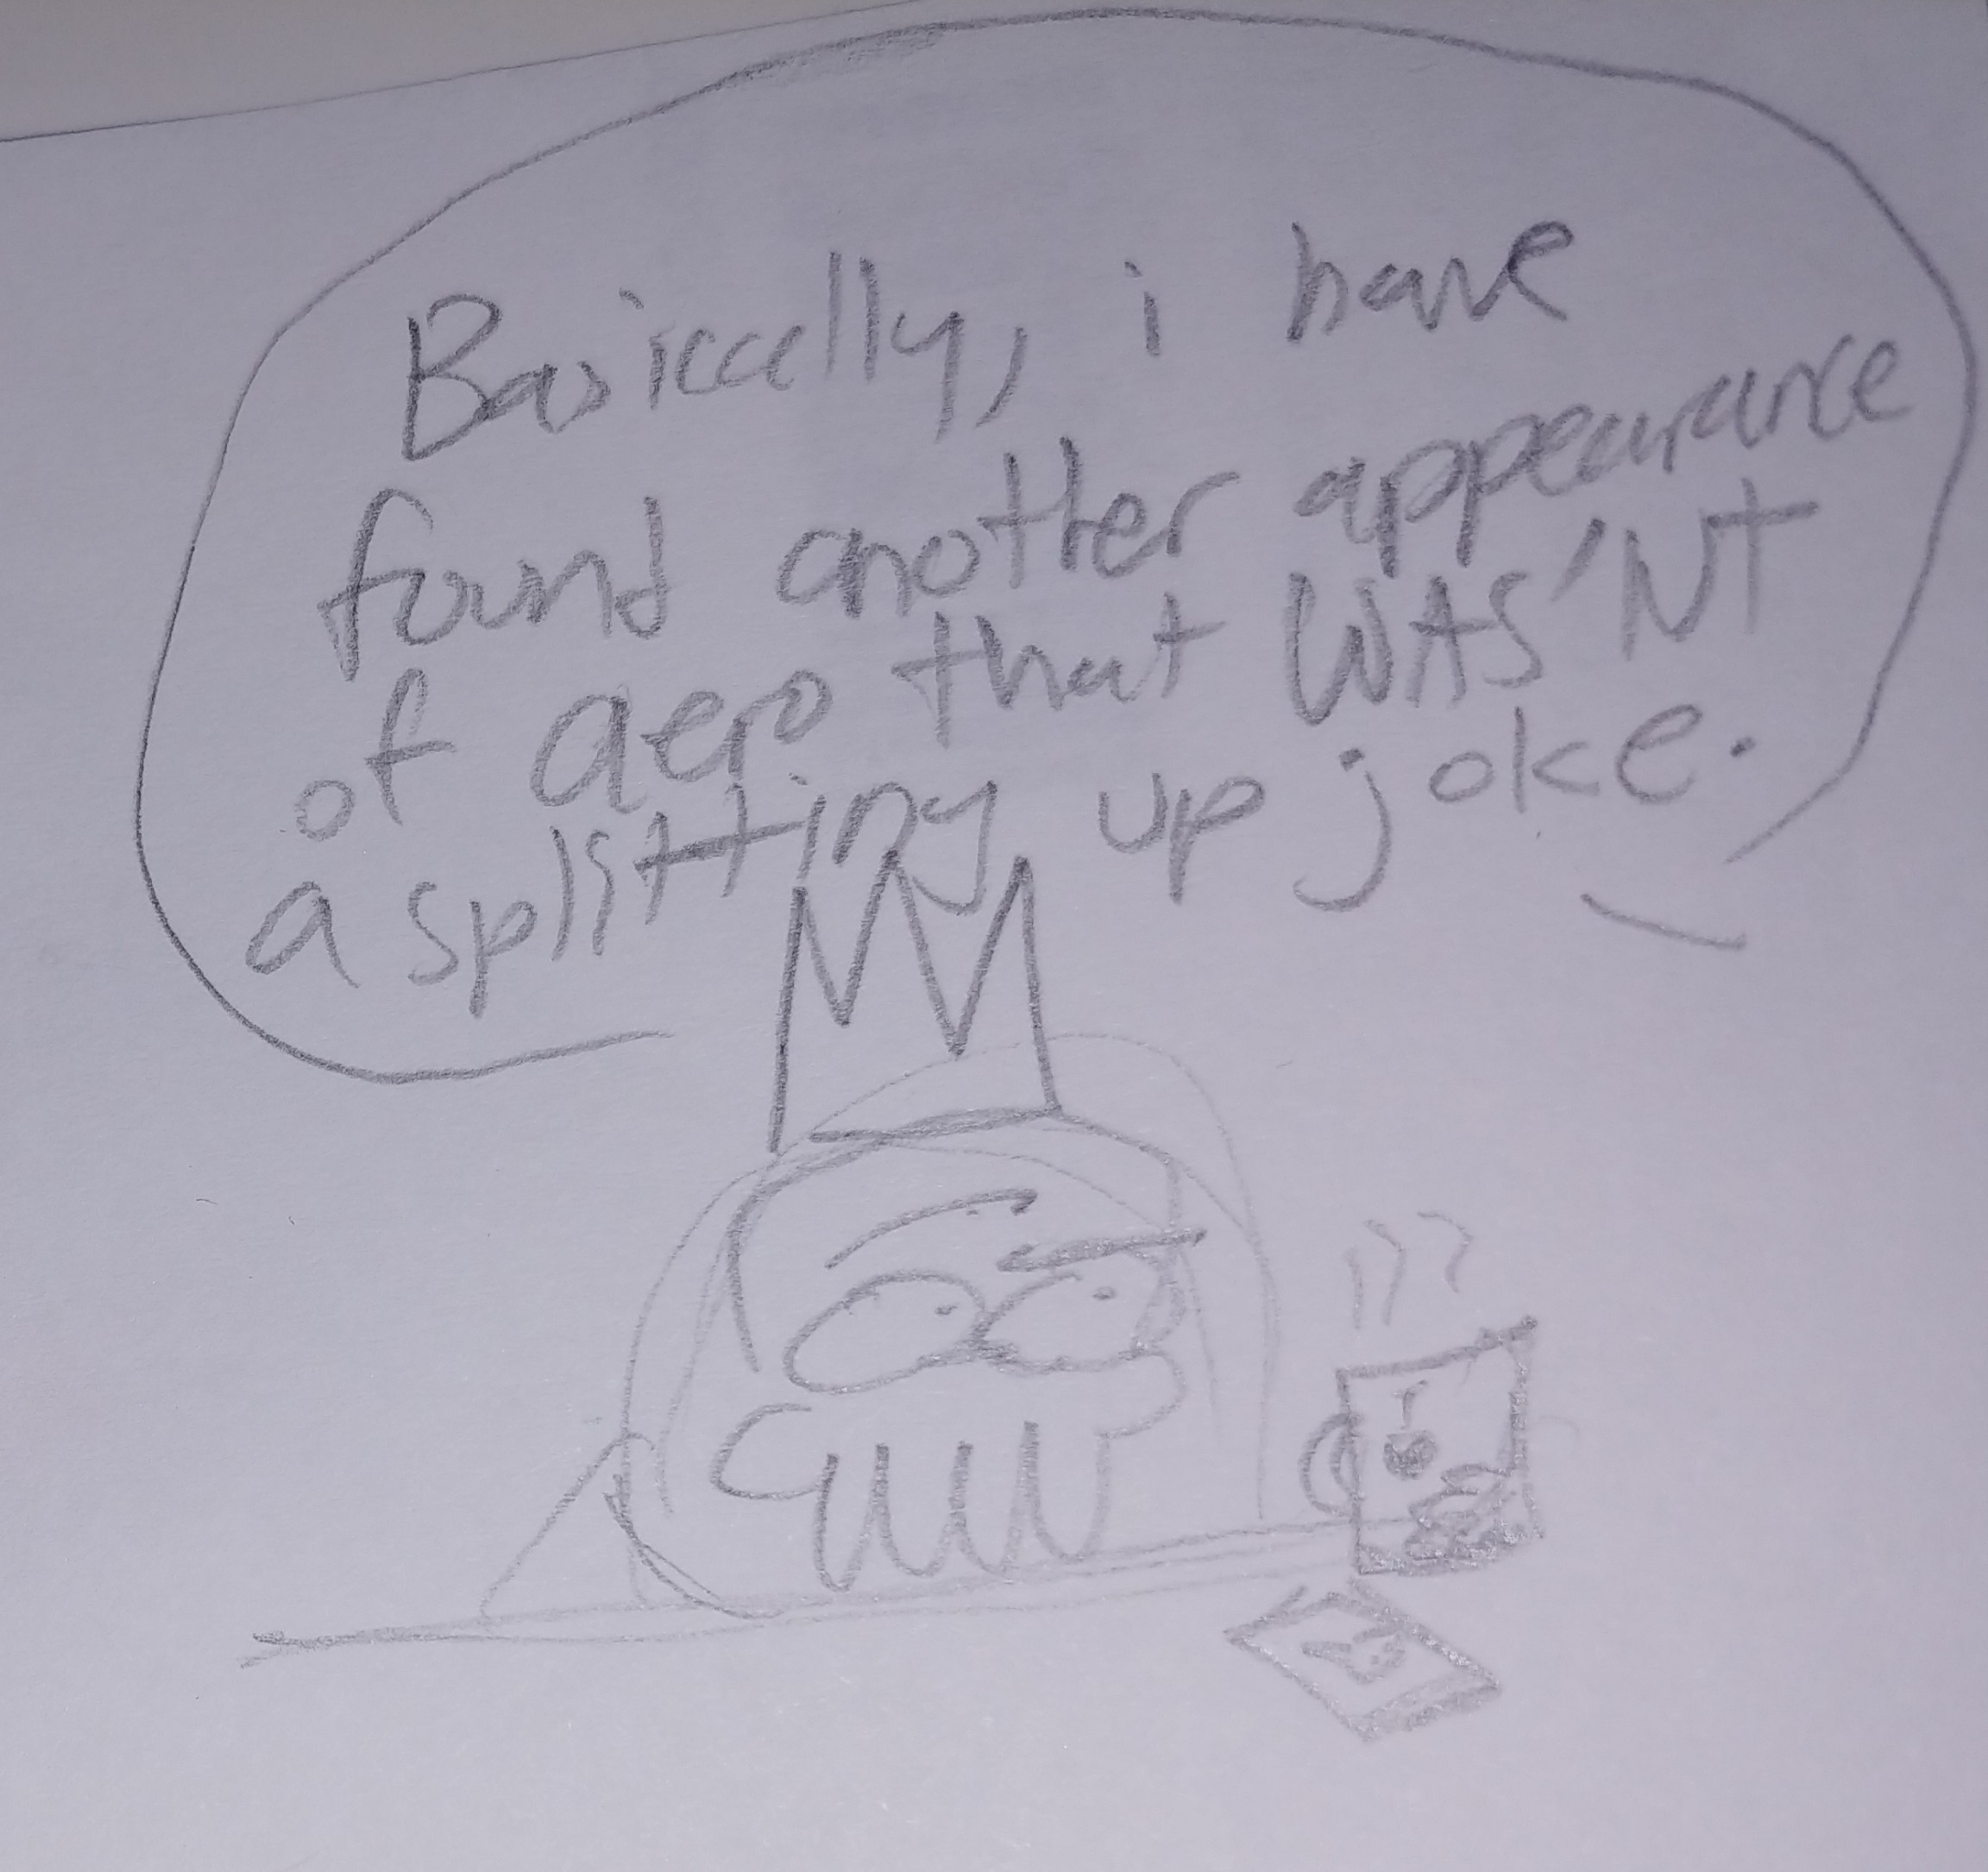 Basically, i have
found another appearance
of aero that WAS'NT
a splitting up joke.